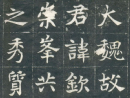 大魏故
君諱欽
崇峯共
之秀質